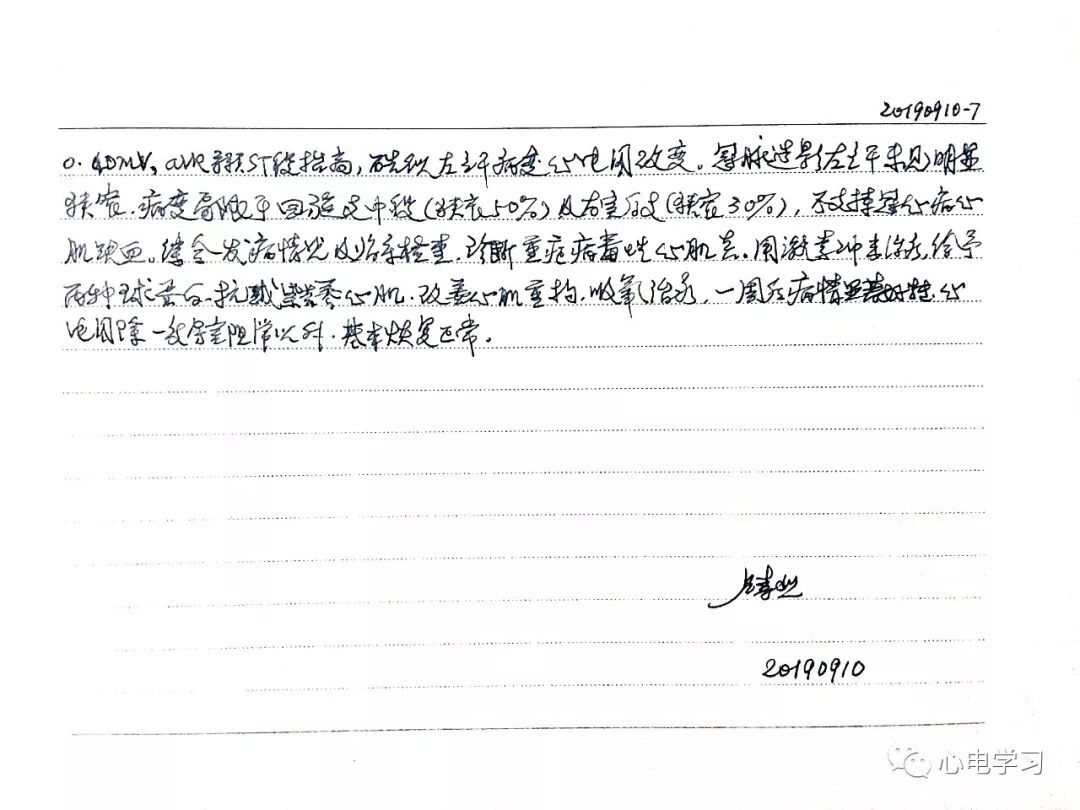 20190910-7
0.40mV, aVR导联ST段抬高, 酷似左主干病变心电图改变。冠脉造影左主干未见明显
狭窄, 病变局限于回旋支中段(狭窄50%)及右室后支(狭窄30%), 不支持冠心病心
肌缺血。结合发病情况及临床检查, 诊断重症病毒性心肌炎。用激素冲击治疗, 给予
丙种球蛋白, 抗, 营养心肌, 改善心肌重构, 吸氧治疗, 一周后病情显著好转, 心
电图除一度房室阻滞以外, 基本恢复正常。
20190910
心电学习